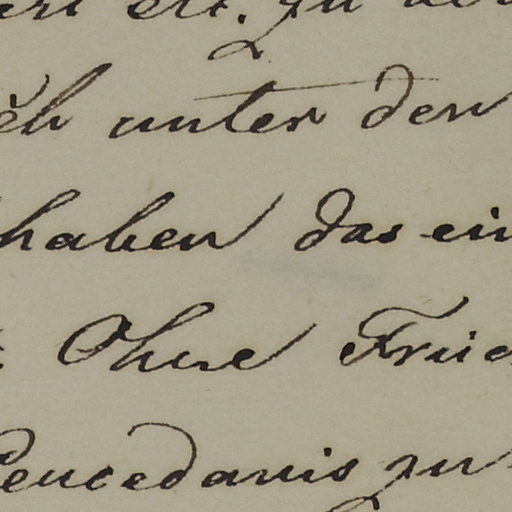 etc. zu
unter den
haben das ein
Ohne Frü
Peucedanis zu